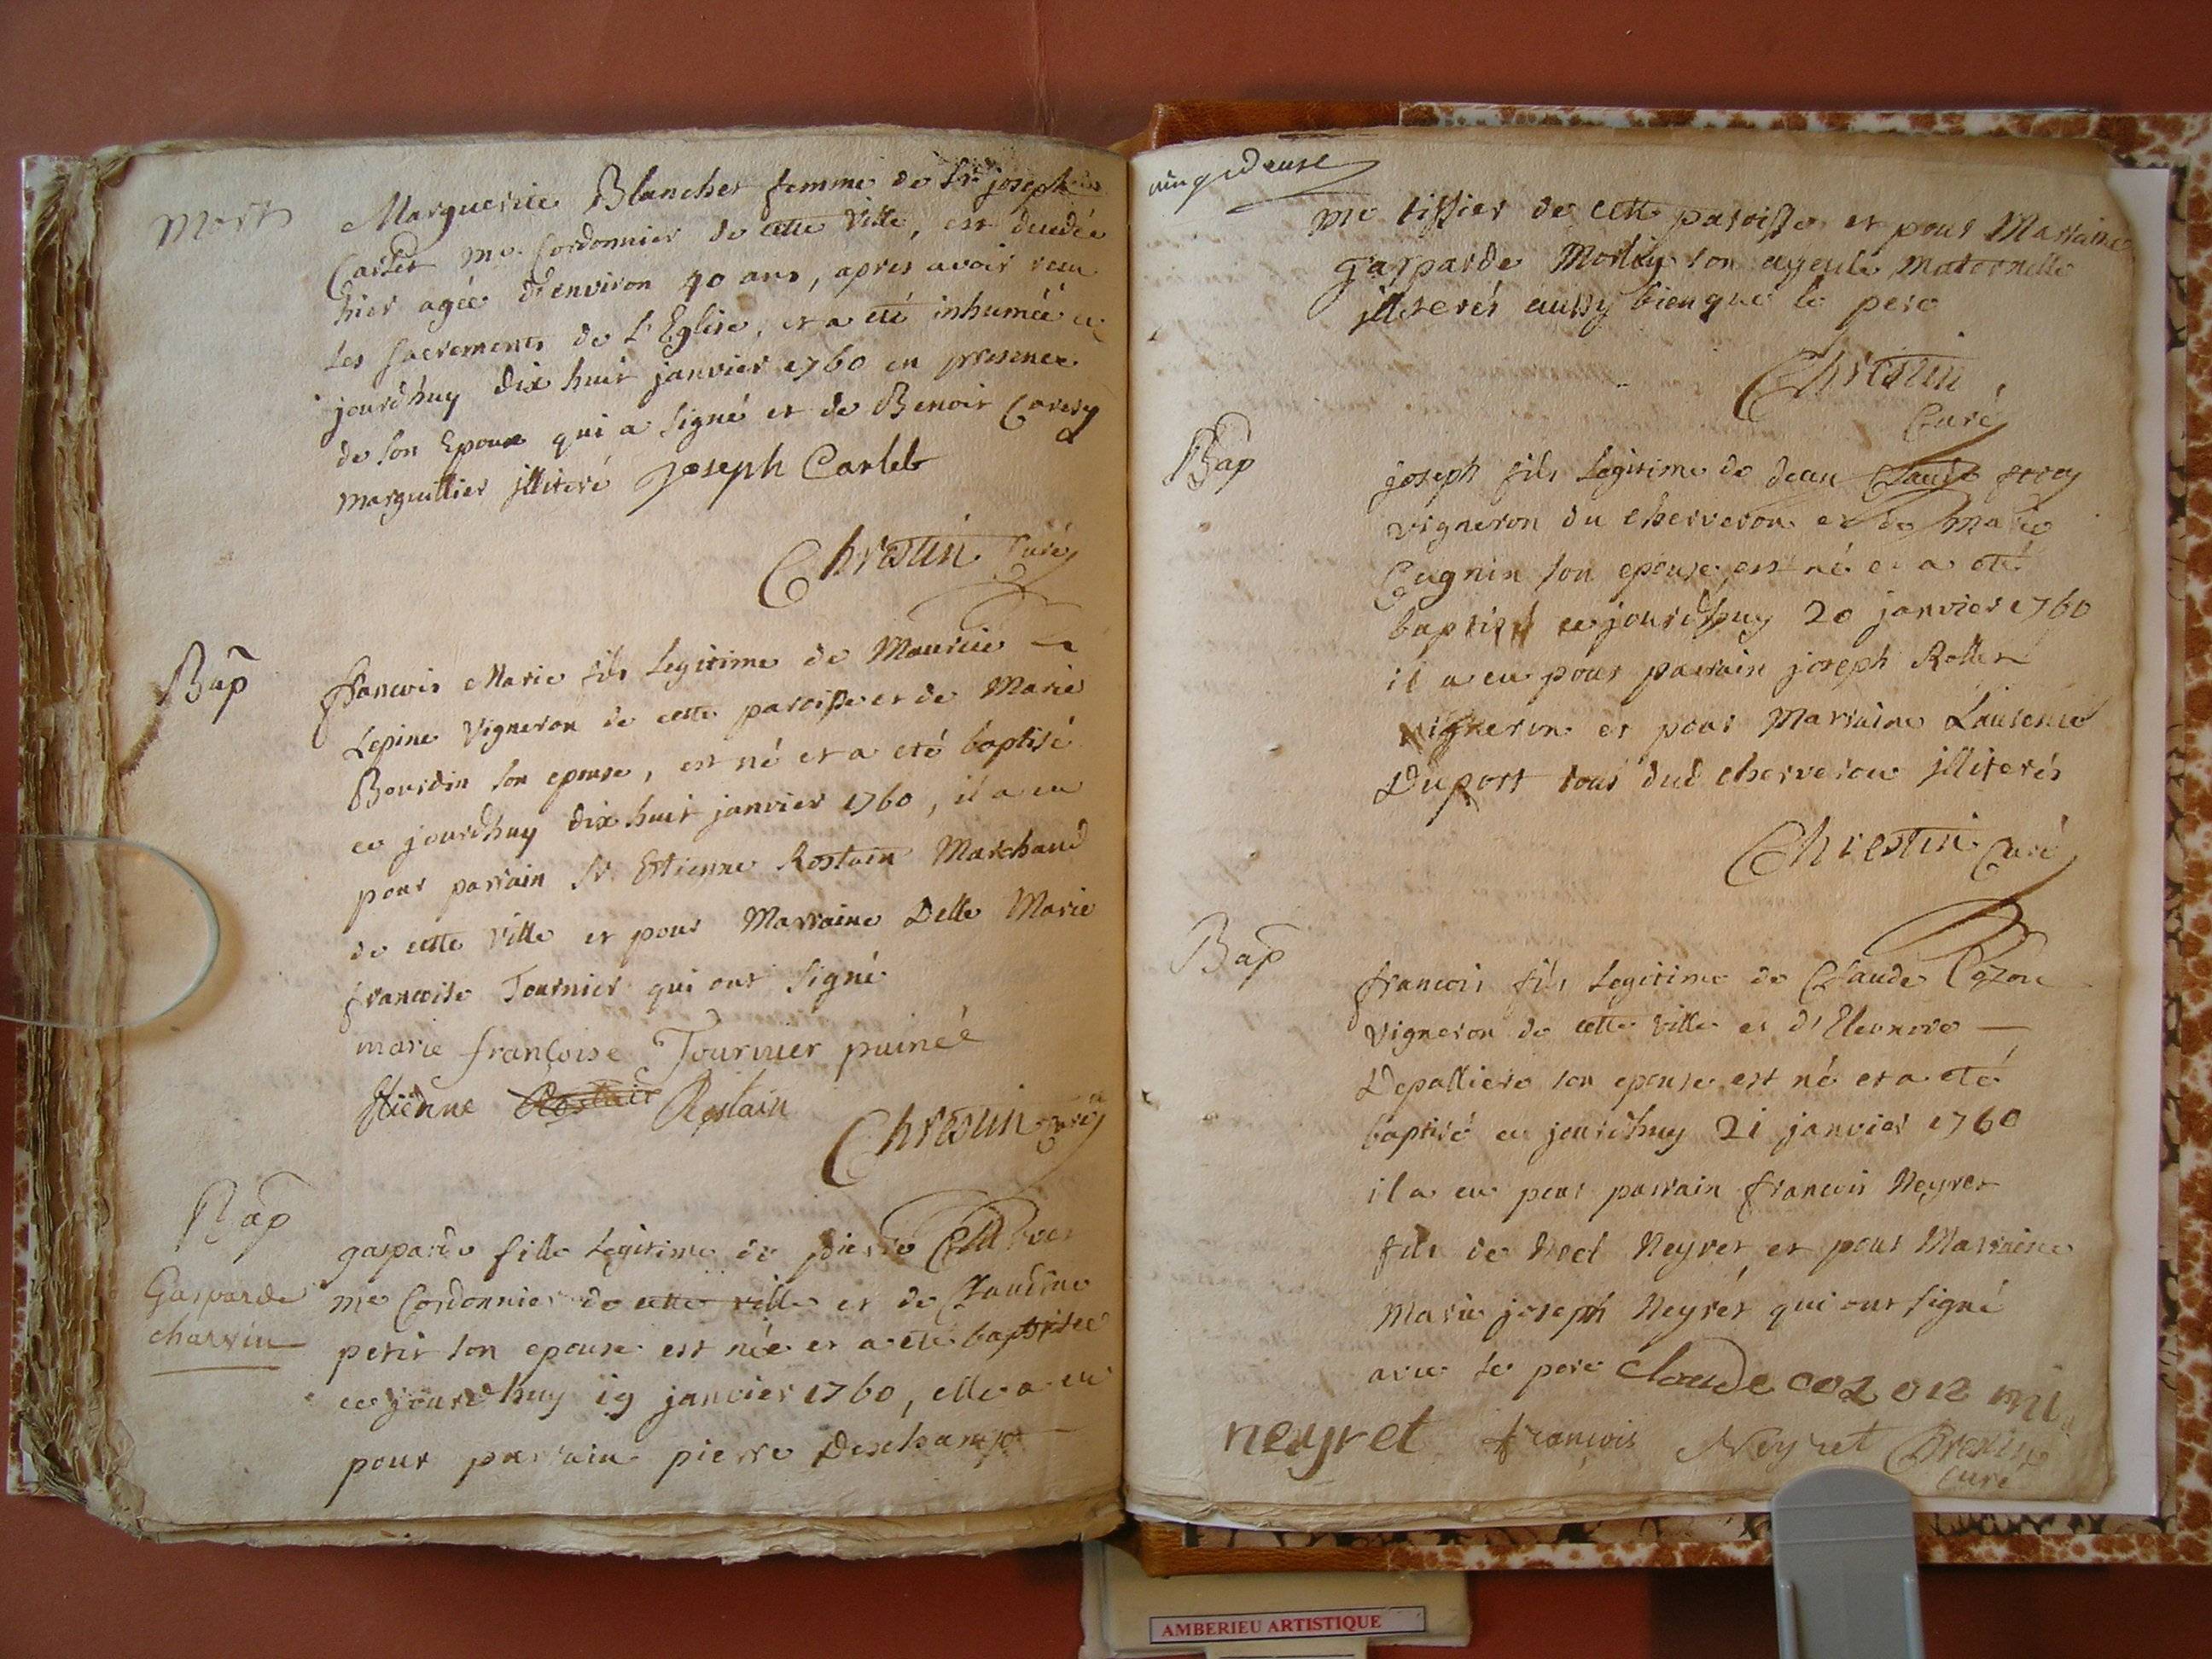 Mort
Marguerite Blanchet femme de Sr. joseph
Carlet me. Cordonnier de cette Ville, est decedée
hier agée d'environ 40 ans, apres avoir recu
les sacrements de L'Eglise, et a eté inhumée ce
jourdhuy dix huit janvier 1760 en presence
de son Epoux qui a signé et de Benoit
marguillier jlliteré Joseph Carlet
Chrestin Curé
Bap
francois Marie fils Legitime de Maurice
Lepine Vigneron de cette paroisse et de Marie
Bourdin son epouse, est né et a eté baptisé
ce jourdhuy dix huit janvier 1760, il a eu
pour parrain Sr. Estienne Rostain Marchand
de cette Ville et pour Marraine Delle Marie
francoise Tournier qui ont signé
marie françoise Tournier puinée
Etienne Rostain Rostain
Chrestin Curé
Bap
Gasparde
charvin
gasparde fille Legitime de pierre
me Cordonnier de cette ville et de Claudine
petit son epouse est née et a eté baptisée
ce jourdhuy 19 janvier 1760, elle a eu
pour parrain pierre Deschamps
me tissier de cette paroisse et pour Marraine
gasparde son ayeule Maternelle
jlliterés aussy bien que le pere
Chrestin
Curé
Bap
joseph fils Legitime de Jean Claude
vigneron du cherveron et de Marie
Cugnin son epouse, est né et a eté
baptisé ce jourdhuy 20 janvier 1760
il a eu pour parrain joseph Rollet
vigneron et pour Marraine Laurence
Duport tous dud cherveron jlliterés
Chrestin Curé
Bap
francois fils Legitime de Claude Cozon
Vigneron de cette Ville et d'Eleonore
Depalliere son epouse est né et a eté
baptisé ce jourdhuy 21 janvier 1760
il a eu pour parrain francois Neyret
fils de Noel Neyret, et pour Marraine
Marie joseph Neyret qui ont signé
avec le pere Claude cozon
neyret françois Neyret Chrestin
Curé
AMBERIEU ARTISTIQUE